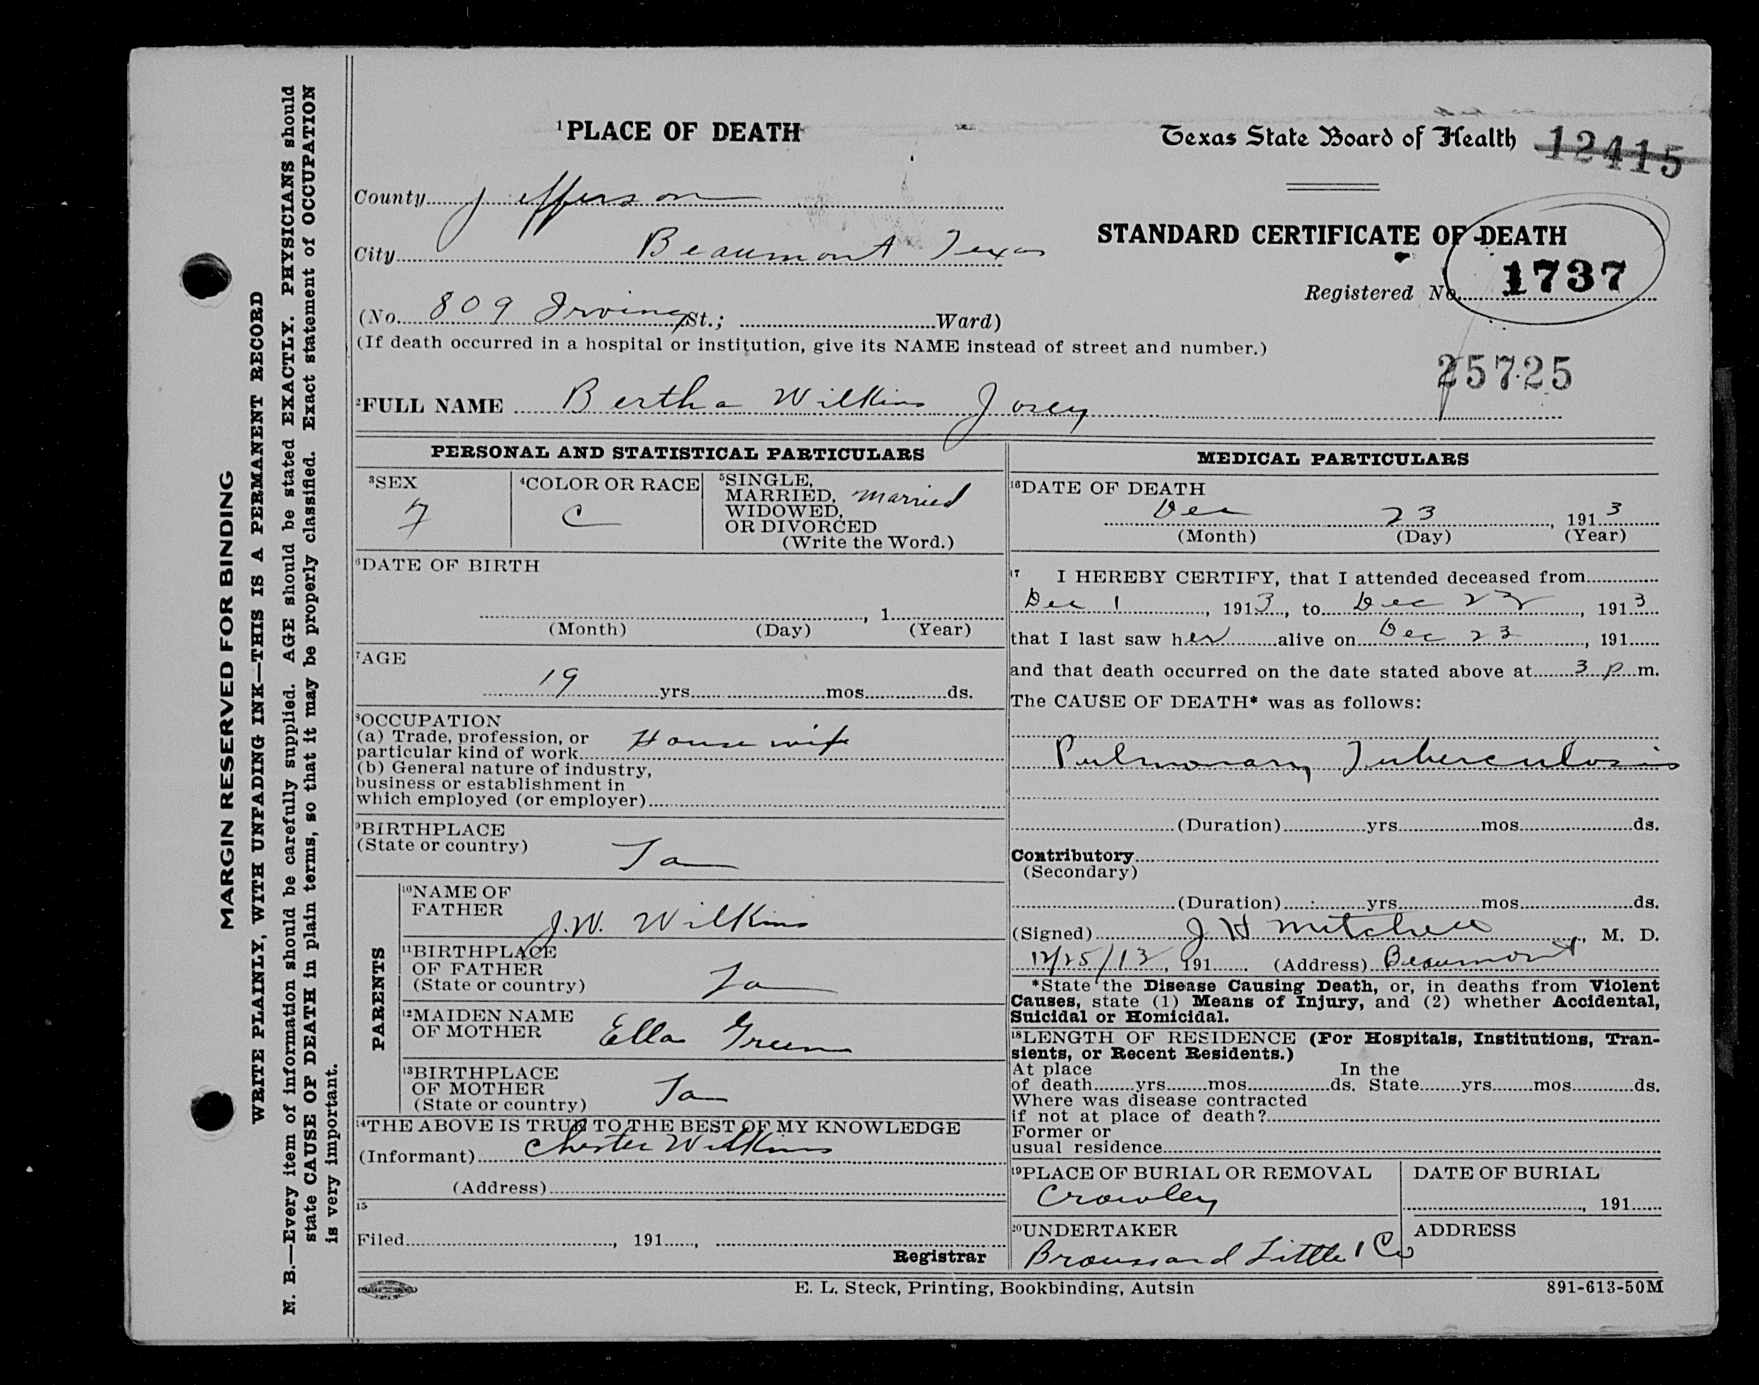 MARGIN RESERVED FOR BINDING
WRITE PLAINLY, WITH UNFADING INK—THIS IS A PERMANENT RECORD
N. B.—Every item of information should be carefully supplied. AGE should be stated EXACTLY. PHYSICIANS should
state CAUSE OF DEATH in plain terms, so that it may be properly classified. Exact statement of OCCUPATION
is very important.
1PLACE OF DEATH
Texas State Board of Health 12415
County Jefferson
STANDARD CERTIFICATE OF DEATH
City Beaumont Texas
Registered No. 1737
(No. 809 Irving St.; Ward)
(If death occurred in a hospital or institution, give its NAME instead of street and number.)
25725
2FULL NAME Bertha Wilkins Josey
PERSONAL AND STATISTICAL PARTICULARS
3SEX
F
4COLOR OR RACE
C
5SINGLE,
MARRIED, married
WIDOWED,
OR DIVORCED
(Write the Word.)
6DATE OF BIRTH
, 1
(Month) (Day) (Year)
7AGE
19 yrs. mos. ds.
8OCCUPATION
(a) Trade, profession, or
particular kind of work House wife
(b) General nature of industry,
business or establishment in
which employed (or employer)
9BIRTHPLACE
(State or country)
La
PARENTS
10NAME OF
FATHER J.W. Wilkins
11BIRTHPLACE
OF FATHER
(State or country) La
12MAIDEN NAME
OF MOTHER Ella Green
13BIRTHPLACE
OF MOTHER
(State or country) La
14THE ABOVE IS TRUE TO THE BEST OF MY KNOWLEDGE
(Informant) Chester Wilkins
(Address)
15
Filed , 191 ,
Registrar
MEDICAL PARTICULARS
16DATE OF DEATH
Dec 23 , 1913
(Month) (Day) (Year)
17 I HEREBY CERTIFY, that I attended deceased from
Dec 1 , 1913, to Dec 23 , 1913
that I last saw her alive on Dec 23 , 191
and that death occurred on the date stated above at 3 p m.
The CAUSE OF DEATH* was as follows:
Pulmonary Tuberculosis
(Duration) yrs. mos. ds.
Contributory
(Secondary)
(Duration) yrs. mos. ds.
(Signed) J H Mitchell , M. D.
12/25/13, 191 (Address) Beaumont
*State the Disease Causing Death, or, in deaths from Violent
Causes, state (1) Means of Injury, and (2) whether Accidental,
Suicidal or Homicidal.
18LENGTH OF RESIDENCE (For Hospitals, Institutions, Tran-
sients, or Recent Residents.)
At place In the
of death yrs. mos. ds. State yrs. mos. ds.
Where was disease contracted
if not at place of death?
Former or
usual residence
19PLACE OF BURIAL OR REMOVAL
Crowley
DATE OF BURIAL
, 191
20UNDERTAKER
Broussard Little & Co
ADDRESS
E. L. Steck, Printing, Bookbinding, Autsin
891-613-50M